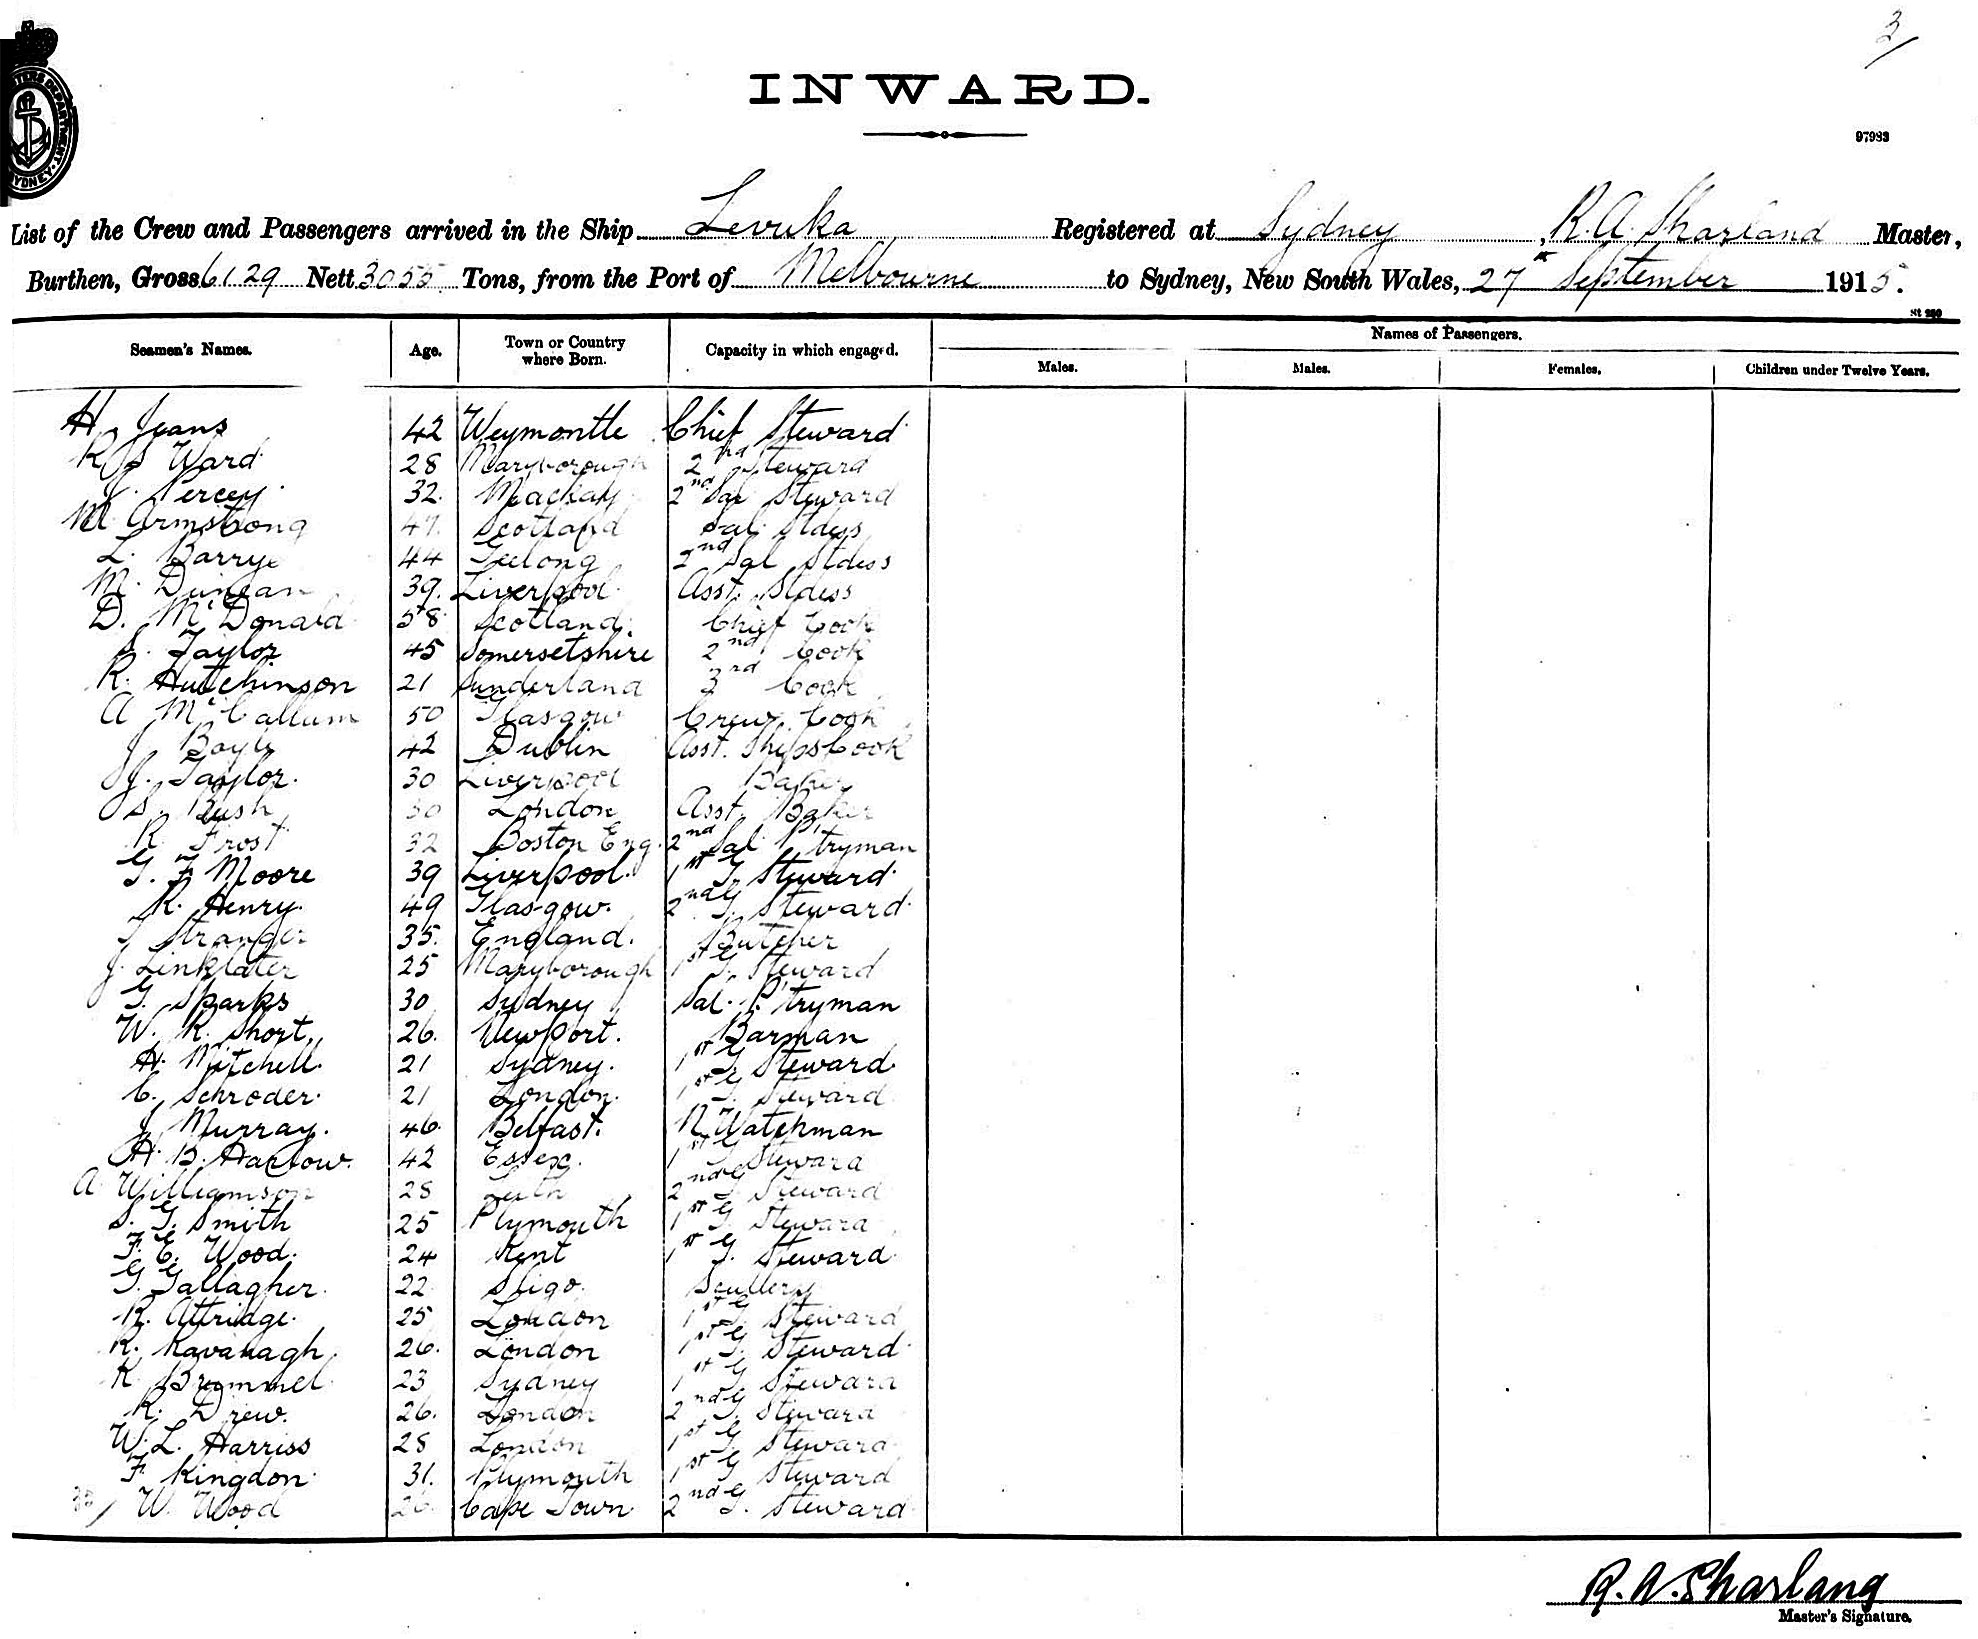 3/
INWARD.
97983
List of the Crew and Passengers arrived in the Ship Levuka Registered at Sydney, R. A. Sharland Master,
Burthen, Gross 6129 Nett 3055 Tons, from the Port of Melbourne to Sydney, New South Wales, 27th September 1915.
St 260
Seamen's Names. Age. Town or Country where Born. Capacity in which engaged. Names of Passengers.
Males. Males. Females. Children under Twelve Years.
H Jeans 42 Weymonth Chief Steward
R J Ward 28 Maryborough 2nd Steward
J. Percey 32. Mackay 2nd Sal Steward
M. Armstrong 47. Scotland Sal. Stdess
L. Barrye 44 Geelong 2nd Sal Stdess
M. Duncan 39. Liverpool Asst. Stdess
D. McDonald 58 Scotland. Chief Cook
S. Taylor 45 Somersetshire 2nd Cook
R. Hutchinson 21 Sunderland 3rd Cook
A McCallum 50 Glasgow Crew Cook
J. Boyle 42 Dublin Asst. Ships Cook
J. Taylor. 30 Liverpool Baker
S. Bush 30 London Asst. Baker
R. Frost 32 Boston Eng. 2nd Sal P'tryman
G. F Moore 39 Liverpool. 1st G. Steward
R. Henry. 49 Glasgow. 2nd G. Steward
Stranger 35. England. Butcher
J. Linklater 25 Maryborough 1st G. Steward
G. Sparks 30 Sydney Sal. P'tryman
W. R. Short. 26. Newport. Barman
H. Mitchell. 21 Sydney. 1st G. Steward
C. Schroder. 21 London. 1st G. Steward
J Murray. 46. Belfast. N Watchman
H. B. Harlow. 42 Essex. 1st G. Steward
A Williamson 28 Leith 2nd G. Steward
S. G. Smith 25 Plymouth 1st G. Steward
F. C. Wood. 24 Kent 1st G. Steward
G. Gallagher. 22 Sligo. Scullery
R. Attridge. 25 London 1st G. Steward
R. Kavanagh. 26. London 1st G. Steward
R. Brommel 23 Sydney 1st G. Steward
R. Drew. 26. London 2nd G. Steward
W. L. Harriss 28 London 1st G. Steward
F. Kingdon. 31. Plymouth 1st G. Steward
W. Wood 26. Cape Town 2nd G. Steward
R. A. Sharland
Master's Signature.